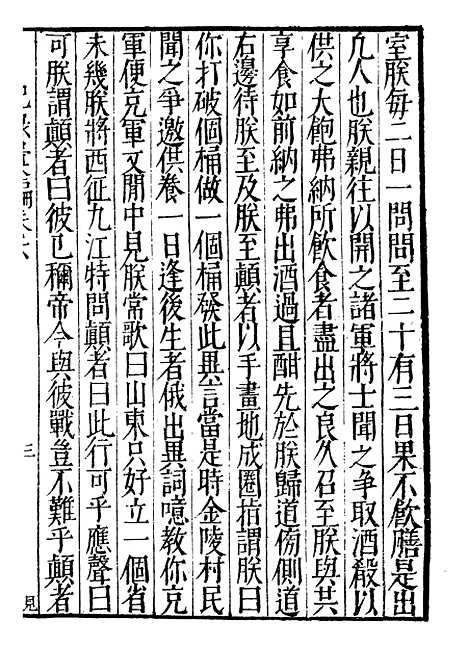 室朕每二日一問問至二十有三日果不飲膳是出
凡人也朕親往以開之諸軍將士聞之争取酒殽以
供之大飽弗納所飲食者盡出之良久召至朕與共
享食如前納之弗出酒過且酣先於朕歸道傍側道
右邊待朕至及朕至顛者以手畫地成圈指謂朕曰
你打破個桶做一個桶發此異言當是時金陵村民
聞之争邀供養一日逢後生者俄出異詞噫教你克
軍便克軍又閒中見朕常歌曰山東只好立一個省
未幾朕將西征九江特問顛者曰此行可乎應聲曰
可朕謂顛者曰彼已稱帝今與彼戰豈不難乎顛者
三
見